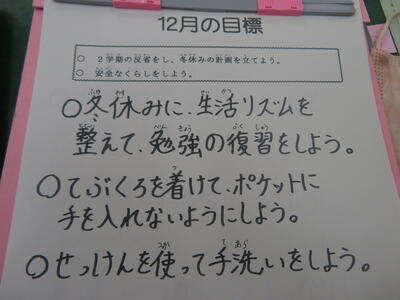 12月の目標
○ 2学期の反省をし、冬休みの計画を立てよう。
○ 安全なくらしをしよう。
○冬休みに、生活リズムを
整えて、勉強の復習をしよう。
○てぶくろを着けて、ポケットに
手を入れないようにしよう。
○せっけんを使って手洗いをしよう。